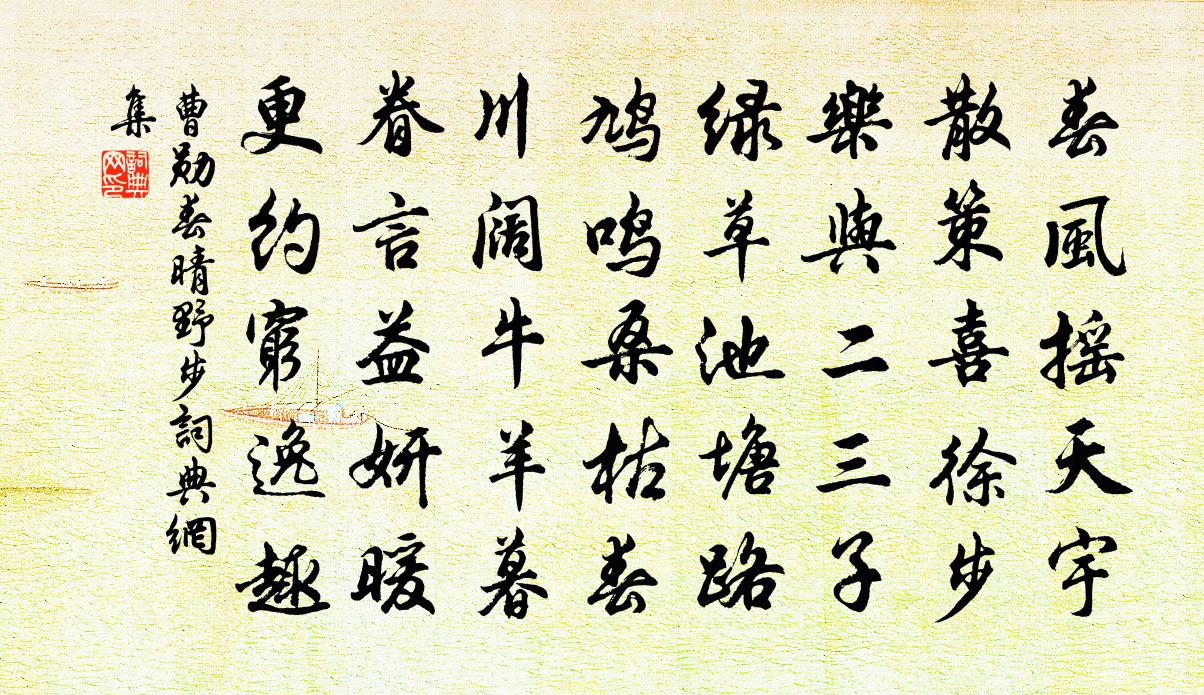 春風摇天宇
散策喜徐步
樂與二三子
緑草池塘路
鳩鸣桑枯春
川阔牛羊暮
眷言益妍暖
更约窮逸趣
曹勛春晴野步詞典網
集
詞典网印